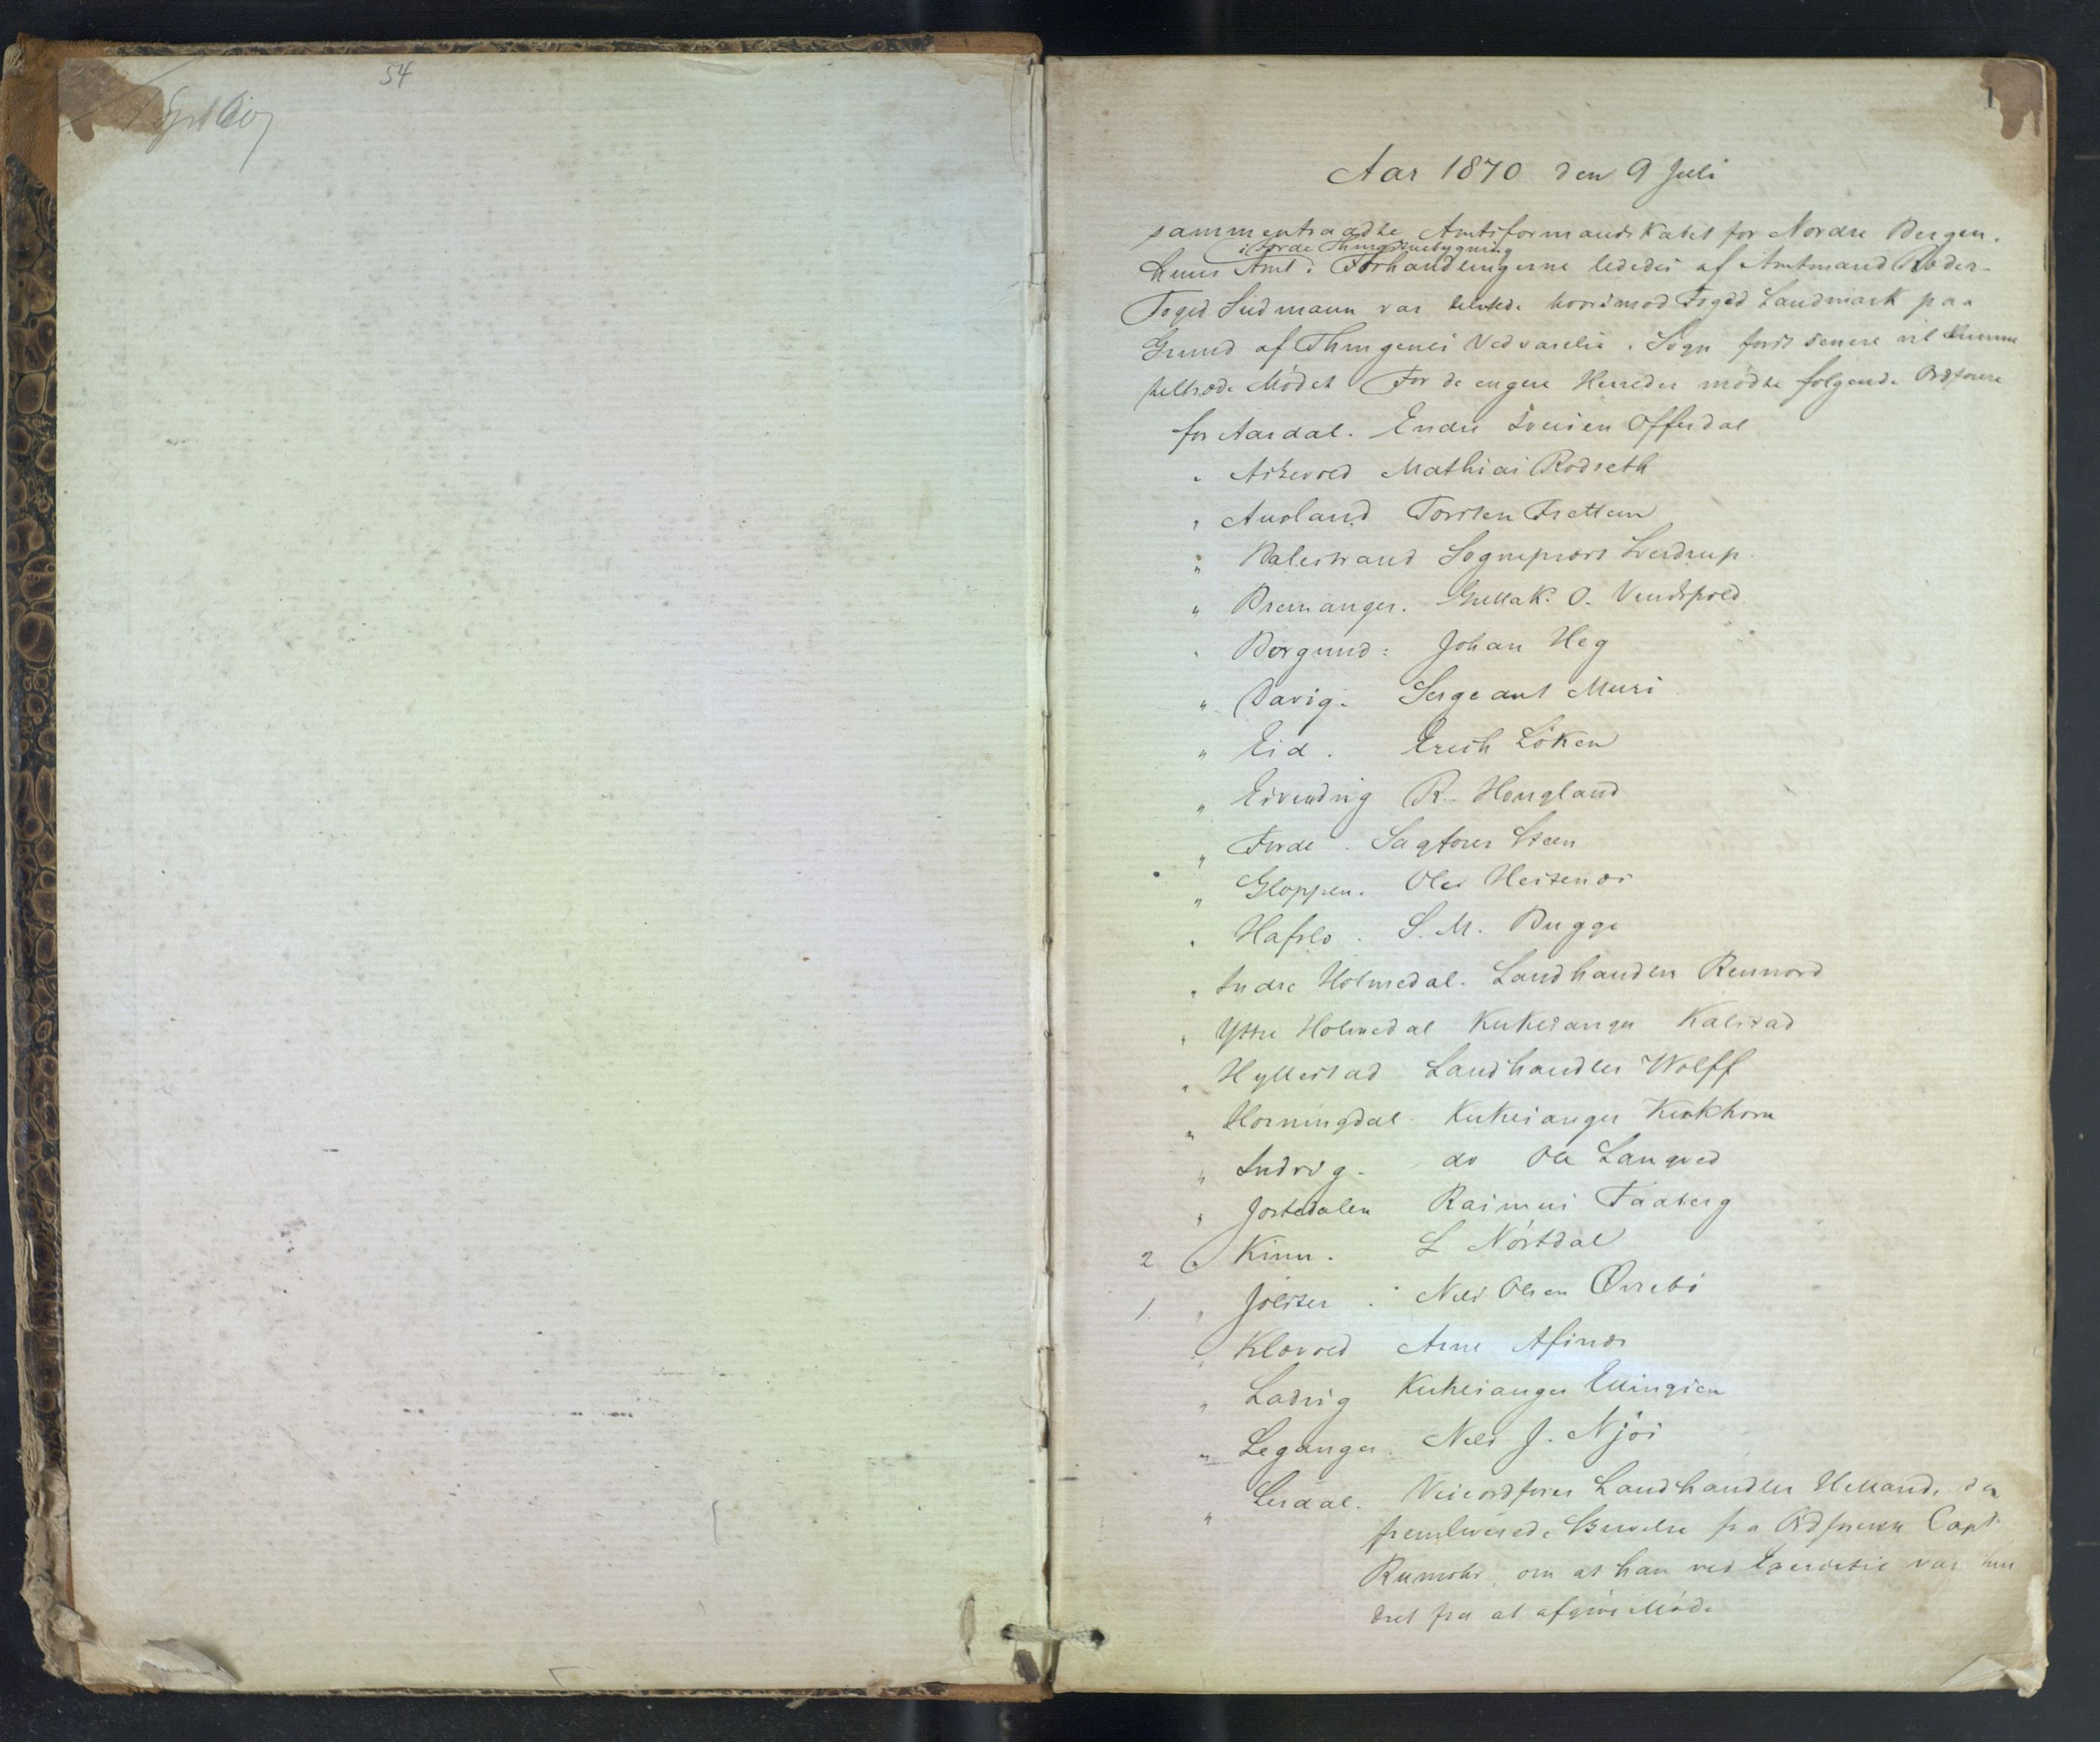 54
1
Aar 1870 den 9 Juli
sammentraadte Amtsformandskabet for Nordre Bergen-
i Førde Thingstuebygning
huus Amt. Forhandlingerne lededes af Amtmand
Foged Lindmann var tilstede hvorimod Foged Landmark paa
Grund af Thingenes Vedvarelse i Sogn først senere vil kunne
tiltræde Mødet For de engere Herreder mødte følgende Ordførere
for Aardal. Endre Iversen Offerdal
" Askevold Mathias Rødseth
" Aurland Torsten Fretteim
" Balestrand Sogneprest Sverdrup
" Bremanger. Gullak O.
" Borgund: Johan Heg
" Davig. Sergeant Muri
" Eid. Erich Løken
" Eivindvig R. Hougland
" Førde. Sagfører Steen
" Gloppen. Ole
" Hafslo. S. M. Bugge
" Indre Holmedal. Landhandler
" Yttre Holmedal Kirkesanger Kalstad
" Hyllestad Landhandler Wolff
" Horningdal Kirkesanger Kirkhorn
" Indvig. do Ole Langved
" Jostedalen Rasmus Faaberg
2 " Kinn. L Nørtdal
1. " Jølster. Nils Olsen Ørrebø
" Klævold Arne
" Ladvig Kirkesanger Ellingsen
" Leganger. Nils J. Njøs
" Lerdal. Viceordfører Landhandler Helland, der
fremleverede Skrivelse fra Ordføreren Capt.
Rumohr, om at han ved Exercitie var hin
dret fra at afgive Møde